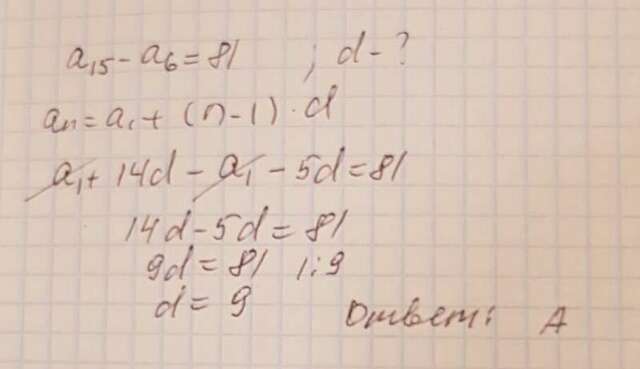 a₁₅ - a₆ = 81 ; d - ?
aₙ = a₁ + (n-1) · d
a₁ + 14d - a₁ - 5d = 81
14d - 5d = 81
9d = 81 | : 9
d = 9
Ответ: A